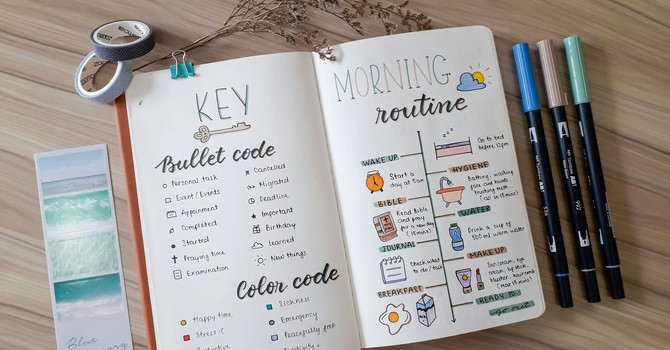 KEY
Bullet code
Personal task
Event/Events
Appoinment
Completed
Started
Praying time
Examination
Cancelled
Migrated
Deadline
Important
Birthday
Learned
New things
Color code
Happy time
Stress :(
Sickness
Emergency
Peacefully free
MORNING
routine
zzz
Go to bed
before 12pm
WAKE UP
Start a
day at 5am
HYGIENE
Bathing, washing
face and hands,
BIBLE
Read Bible
and pray
for a new
day (15mins)
WATER
Drink a cup of
500ml warm water
JOURNAL
check what
to do/task
MAKE UP
BREAKFAST
READY TO
go out
Blue